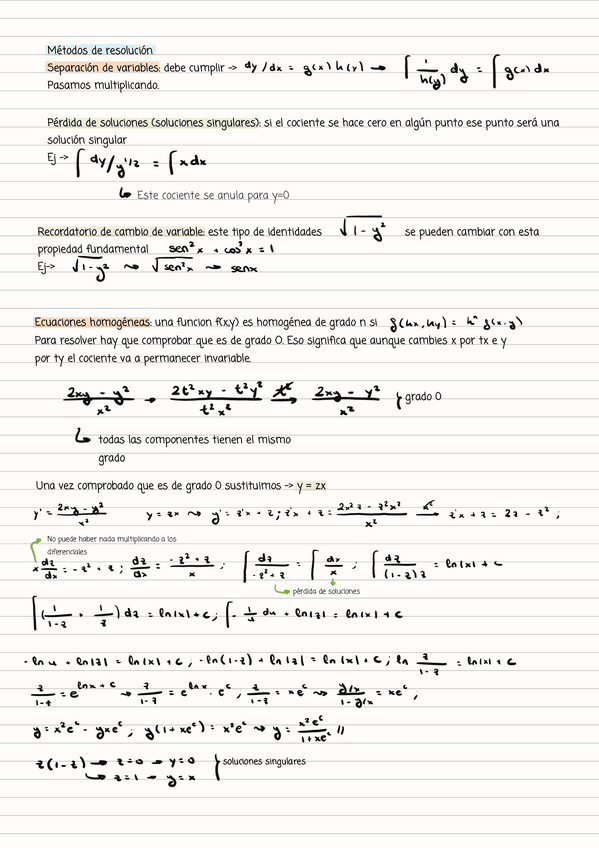 Métodos de resolución
Separación de variables: debe cumplir -> dy/dx = g(x) h(y) → ∫ 1/h(y) dy = ∫ g(x) dx
Pasamos multiplicando.
Pérdida de soluciones (soluciones singulares): si el cociente se hace cero en algún punto ese punto será una
solución singular
Ej -> ∫ dy/y^1/2 = ∫ x dx
↳ Este cociente se anula para y=0
Recordatorio de cambio de variable: este tipo de identidades √(1-y²) se pueden cambiar con esta
propiedad fundamental sen²x + cos²x = 1
Ej-> √(1-y²) ~> √(sen²x) ~> senx
Ecuaciones homogéneas: una funcion f(x,y) es homogénea de grado n si f(hx, hy) = hⁿ f(x·y)
Para resolver hay que comprobar que es de grado 0. Eso significa que aunque cambies x por tx e y
por ty el cociente va a permanecer invariable.
(2xy - y²)/x² → (2t²xy - t²y²)/(t²x²) t² → (2xy - y²)/x² } grado 0
↳ todas las componentes tienen el mismo
grado
Una vez comprobado que es de grado 0 sustituimos -> y = zx
y' = (2xy - y²)/x² y = zx ~> y' = z'x + z ; z'x + z = (2x²z - z²x²)/x² x² → z'x + z = 2z - z² ;
No puede haber nada multiplicando a los
diferenciales
x dz/dx = -z² + z ; dz/dx = (-z² + z)/x ; ∫ dz/(-z² + z) = ∫ dx/x ; ∫ dz/((1-z)z) = ln|x| + c
↳ pérdida de soluciones
∫ (1/(1-z) + 1/z) dz = ln|x| + c ; ∫ - 1/u du + ln|z| = ln|x| + c
- ln u + ln|z| = ln|x| + c ; -ln(1-z) + ln|z| = ln|x| + c ; ln z/(1-z) = ln|x| + c
z/(1-z) = e^(lnx + c) → z/(1-z) = e^(lnx) · e^c ; z/(1-z) = xe^c ~> (y/x)/(1-y/x) = xe^c ;
y = x²e^c - yxe^c ; y(1+xe^c) = x²e^c ~> y = x²e^c/(1+xe^c) //
z(1-z) → z=0 → y=0 } soluciones singulares
↳ z=1 → y=x